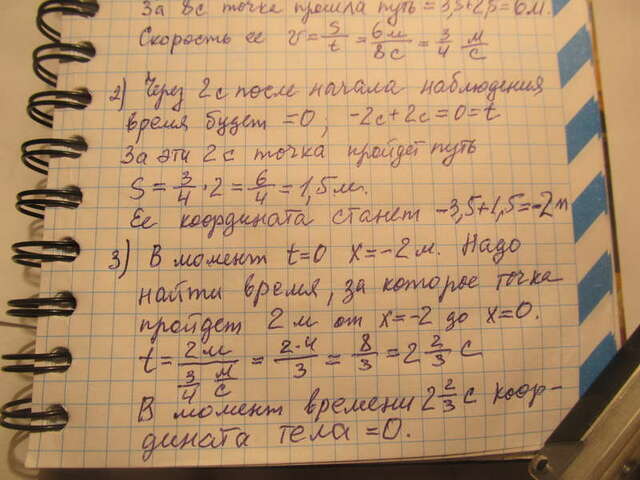 За 8с точка прошла путь = 3,5+2,5=6м.
Скорость ее v = S/t = 6м/8с = 3/4 м/с
2) Через 2с после начала наблюдения
время будет =0; -2с+2с=0=t
За эти 2с точка пройдет путь
S = 3/4 · 2 = 6/4 = 1,5м.
Ее координата станет -3,5+1,5=-2м
3) В момент t=0 x=-2м. Надо
найти время, за которое точка
пройдет 2м от x=-2 до x=0.
t = 2м / 3/4 м/с = 2·4/3 = 8/3 = 2 2/3 с
В момент времени 2 2/3 с коор-
дината тела =0.